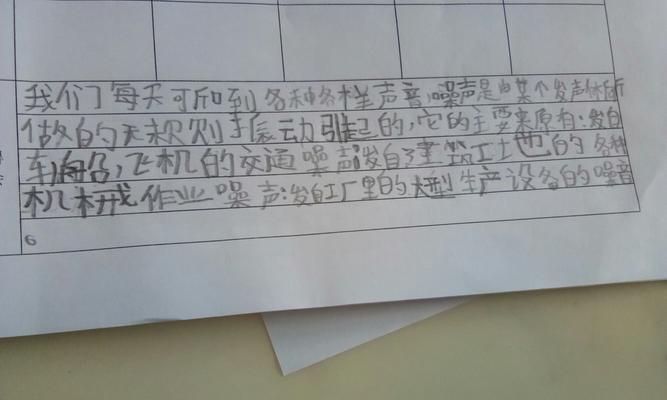 我们了每天可听到各种各样声音,噪声是由某个发声体所
做的无规则振动引起的,它的主要来原有:发自
车船,飞机的交通噪声;发自建筑工地的各种
机械作业噪声:发自工厂里的大型生产设备的噪音
。